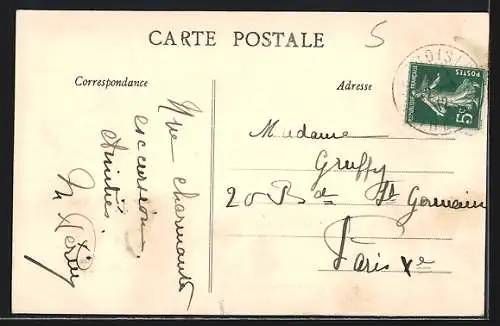 CARTE POSTALE
5
Correspondance
Adresse
Une charmante
excursion.
Amitiés.
POSTES
REPUBLIQUE FRANÇAISE
5c
Madame
Gruffy
20 Bd St Germain
Paris Ve